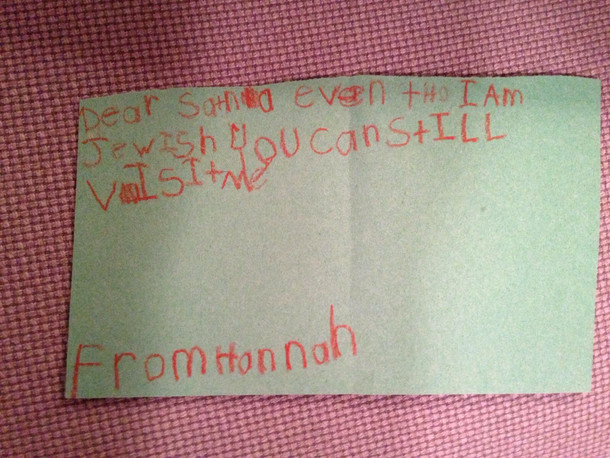 Dear Satnna even tho I Am
Jewish you can stILL
VISIt Me
From Hannah